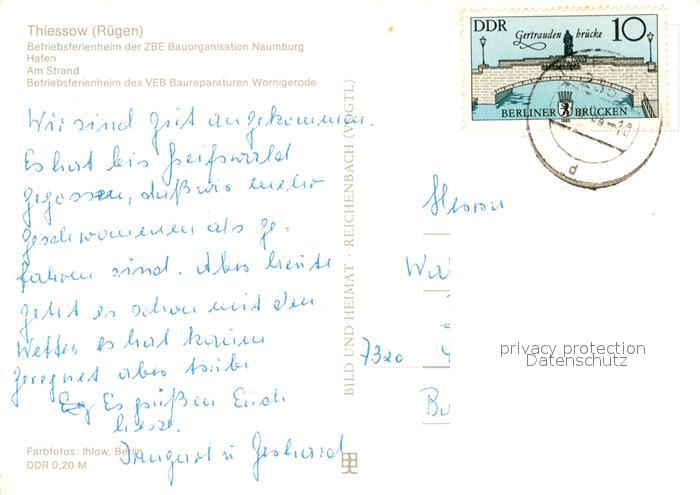 Thiessow (Rügen)
Betriebsferienheim der ZBE Bauorganisation Naumburg
Hafen
Am Strand
Betriebsferienheim des VEB Baureparaturen Wernigerode
DDR
Gertrauden brücke
10
BERLINER BRÜCKEN
1985
Wir sind gut angekommen.
Es hat bis Greifswald
gegossen, daß wir mehr
geschwommen als ge-
fahren sind. Aber heute
geht es schon mit dem
Wetter es hat kaum
geregnet aber trübe
Es grüßen Euch
Irmgard u Gerhard
BILD UND HEIMAT · REICHENBACH (VOGTL)
Herrn
7320
privacy protection
Datenschutz
Farbfotos: Ihlow, Berlin
DDR 0,20 M